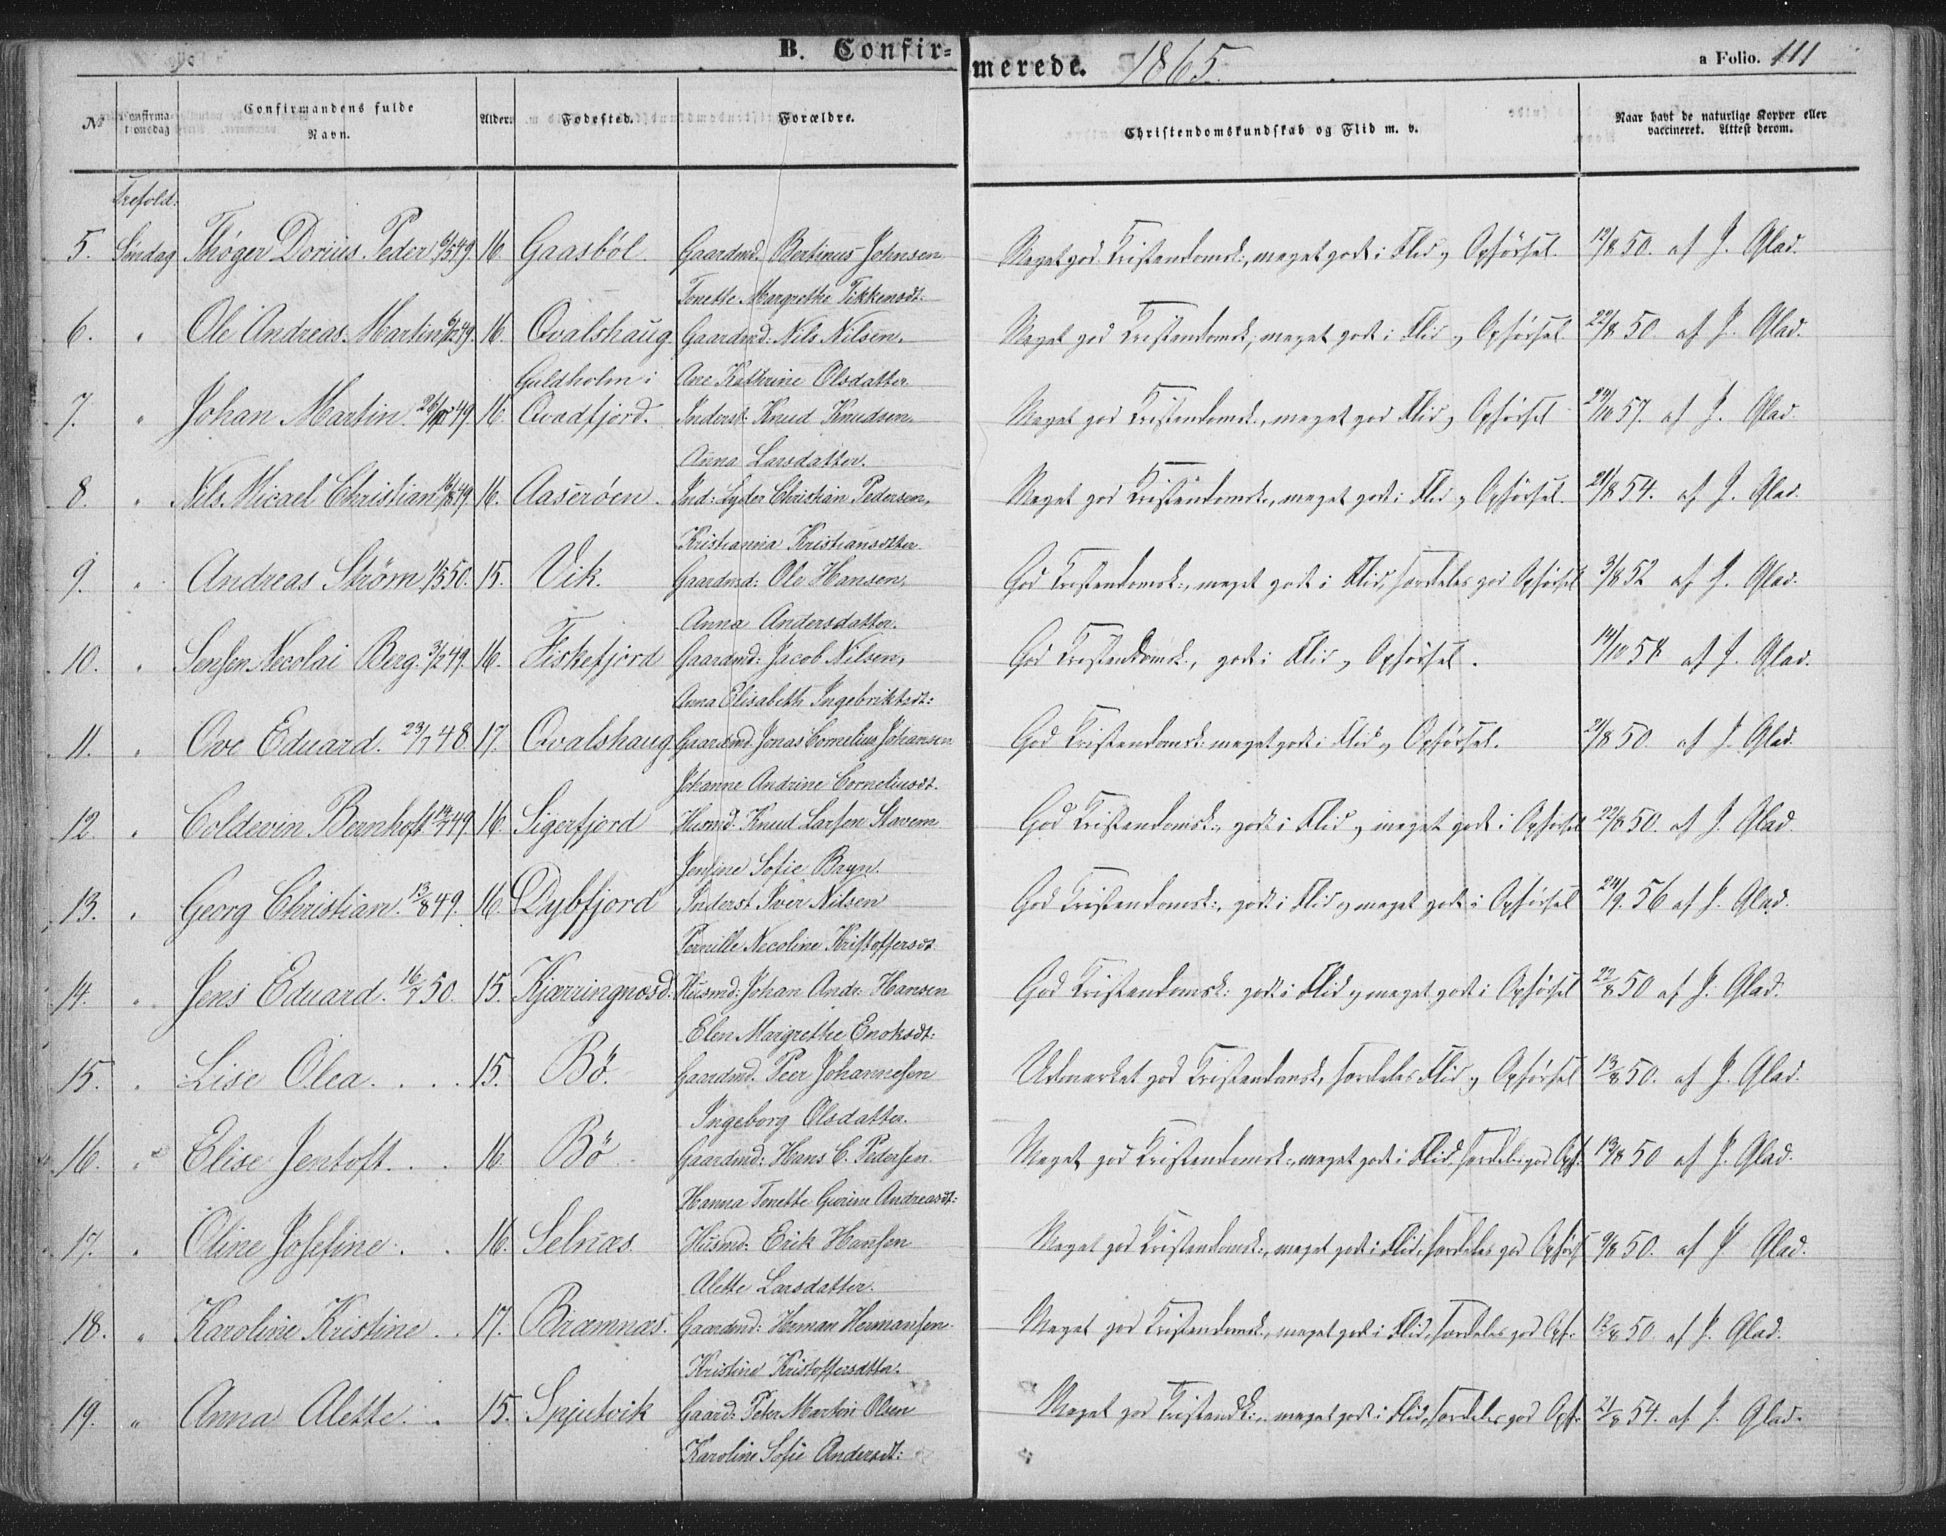 B. Confir-merede. 1865. a Folio. 111
No Confirmationsdag Confirmandens fulde Navn. Alder. Fødested. Forældre. Christendomskundskab og Flid m. v. Naar havt de naturlige Kopper eller vaccineret. Attest derom.
Trefold.
5. Søndag Thøger Dorius Peder 49. 16. Gaasböl. Gaardmd. Bertinus Johnsen Meget god Kristendomsk:, meget godt i Flid og Opførsel. 19/8 50. af J. Glad.
Tonette Margrethe
6. " Ole Andreas Martin 49. 16. Qvalshaug Gaardmd: Nils Nilsen, Meget god Kristendomsk:, meget godt i Flid og Opførsel 22/8 50. af J. Glad.
Guldholm i Ane Kathrine Olsdatter
7. " Johan Martin. 49. 16. Qvadfjord. Inderst: Knud Knudsen, Meget god Kristendomsk:, meget god Flid og Opførsel 24/10 57. af J. Glad.
Anna Larsdatter.
8. " Nils Micael Christian 49 16. Aaserøen. Ind: Lyder Christian Pedersen, Meget god Kristendomsk:, meget godt i Flid og Opførsel. 21/8 54. af J. Glad.
Kristianna Kristiansdtter
9. " Andreas Strøm 50. 15. Vik. Gaardmd: Ole Hansen, God Kristendomsk:, meget godt i Flid, særdeles god Opførsel 3/8 52 af J. Glad.
Anna Andersdatter.
10. " Jensen Necolai Berg. 3/2 49. 16. Fiskefjord Gaardmd: Jacob Nilsen, God Kristendomsk:, godt i Flid og Opførsel. 14/10 58 af J. Glad.
Anna Elisabeth Ingebriktsdt:
11. " Ove Eduard. 23/7 48. 17. Qvalshaug Gaardmd. Jonas Cornelius Johansen God Kristendomsk: meget godt i Flid og Opførsel. 21/8 50. af J. Glad.
Johanne Andrine Corneliusdt.
12. " Coldevin Bernhoft 49 16. Sigerfjord Husmd. Knud Larsen Stavem God Kristendomsk:, godt i Flid og meget godt i Opførsel 22/8 50. af J. Glad.
Jensine Sofie Bryn.
13. " Georg Christian. 13/8 49. 16. Dybfjord Inderst Iver Nilsen God Kristendomsk:, godt i Flid og meget godt i Opførsel 24/9. 56 af J. Glad.
Pernille Necoline Kristoffersdt.
14. " Jens Eduard. 16/7 50. 15. Kjærringnæsd. Husmd: Johan Andr: Hansen God Kristendomsk: godt i Flid og meget godt i Opførsel 22/8 50 af J. Glad.
Elen Margrethe Enoksdt:
15. " Lise Olea. 15. Bø. Gaardmd. Peer Johannesen Udmærket god Kristendomsk, særdeles Flid og Opførsel 13/8 50. af J. Glad.
Ingeborg Olsdatter.
16. " Elise Jentoft. 16 Bø Gaardmd: Hans C. Pedersen. Meget god Kristendomsk:, meget godt i Flid, særdeles god Opf. 13/8 50 af J. Glad.
Hanna Tonette Gurine Andreasdt:
17. " Oline Josefine. 16. Selnæs Husmd: Erik Hansen Meget god Kristendomsk:, meget godt i Flid, særdeles god Opførs 9/8 50. af J. Glad.
Alette Larsdatter.
18. " Karoline Kristine. 17. Bræmnæs. Gaardmd: Herman Hermansen. Meget god Kristendomsk:, meget godt i Flid, særdeles god Opf. 12/8 50. af J. Glad.
Kristine Kristoffersdatter.
19. " Anna Alette. 15. Spjutvik Gaard: Peter Martin Olsen Meget god Kristendk:, meget godt i Flid, særdeles god Opf. 21/8 54. af J. Glad.
Karoline Sofie Andersdt: